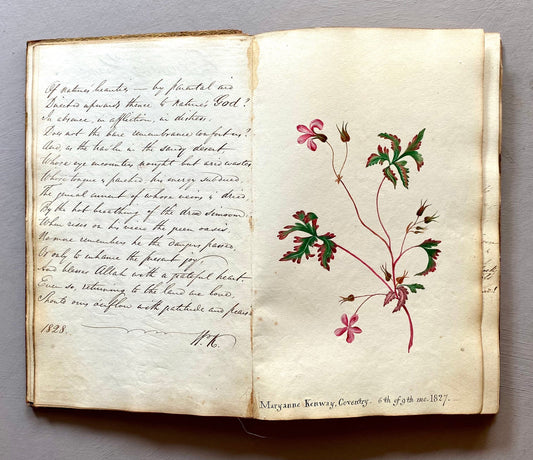 Of natures beauties — by parental aid
Directed upwards thence to nature's God?
In absence, in affliction, in distress
Does not the bare remembrance comfort us?
And, as the in the sandy desert
Whose eye encounters nought but arid wastes
Whose tongue is parched his energy subdued
The genial current of whose veins is dried
By the hot breathing of the dread Simoom
When rises on his view the green oasis
No more remembers he the dangers passed
Or only to enhance the present joy
And blesses Allah with a grateful heart.
Even so, returning to the land we love,
Should ours o'erflow with gratitude and praise
1828. H.K.
Maryanne Kenway, Coventry. 6th of 9th mo. 1827.